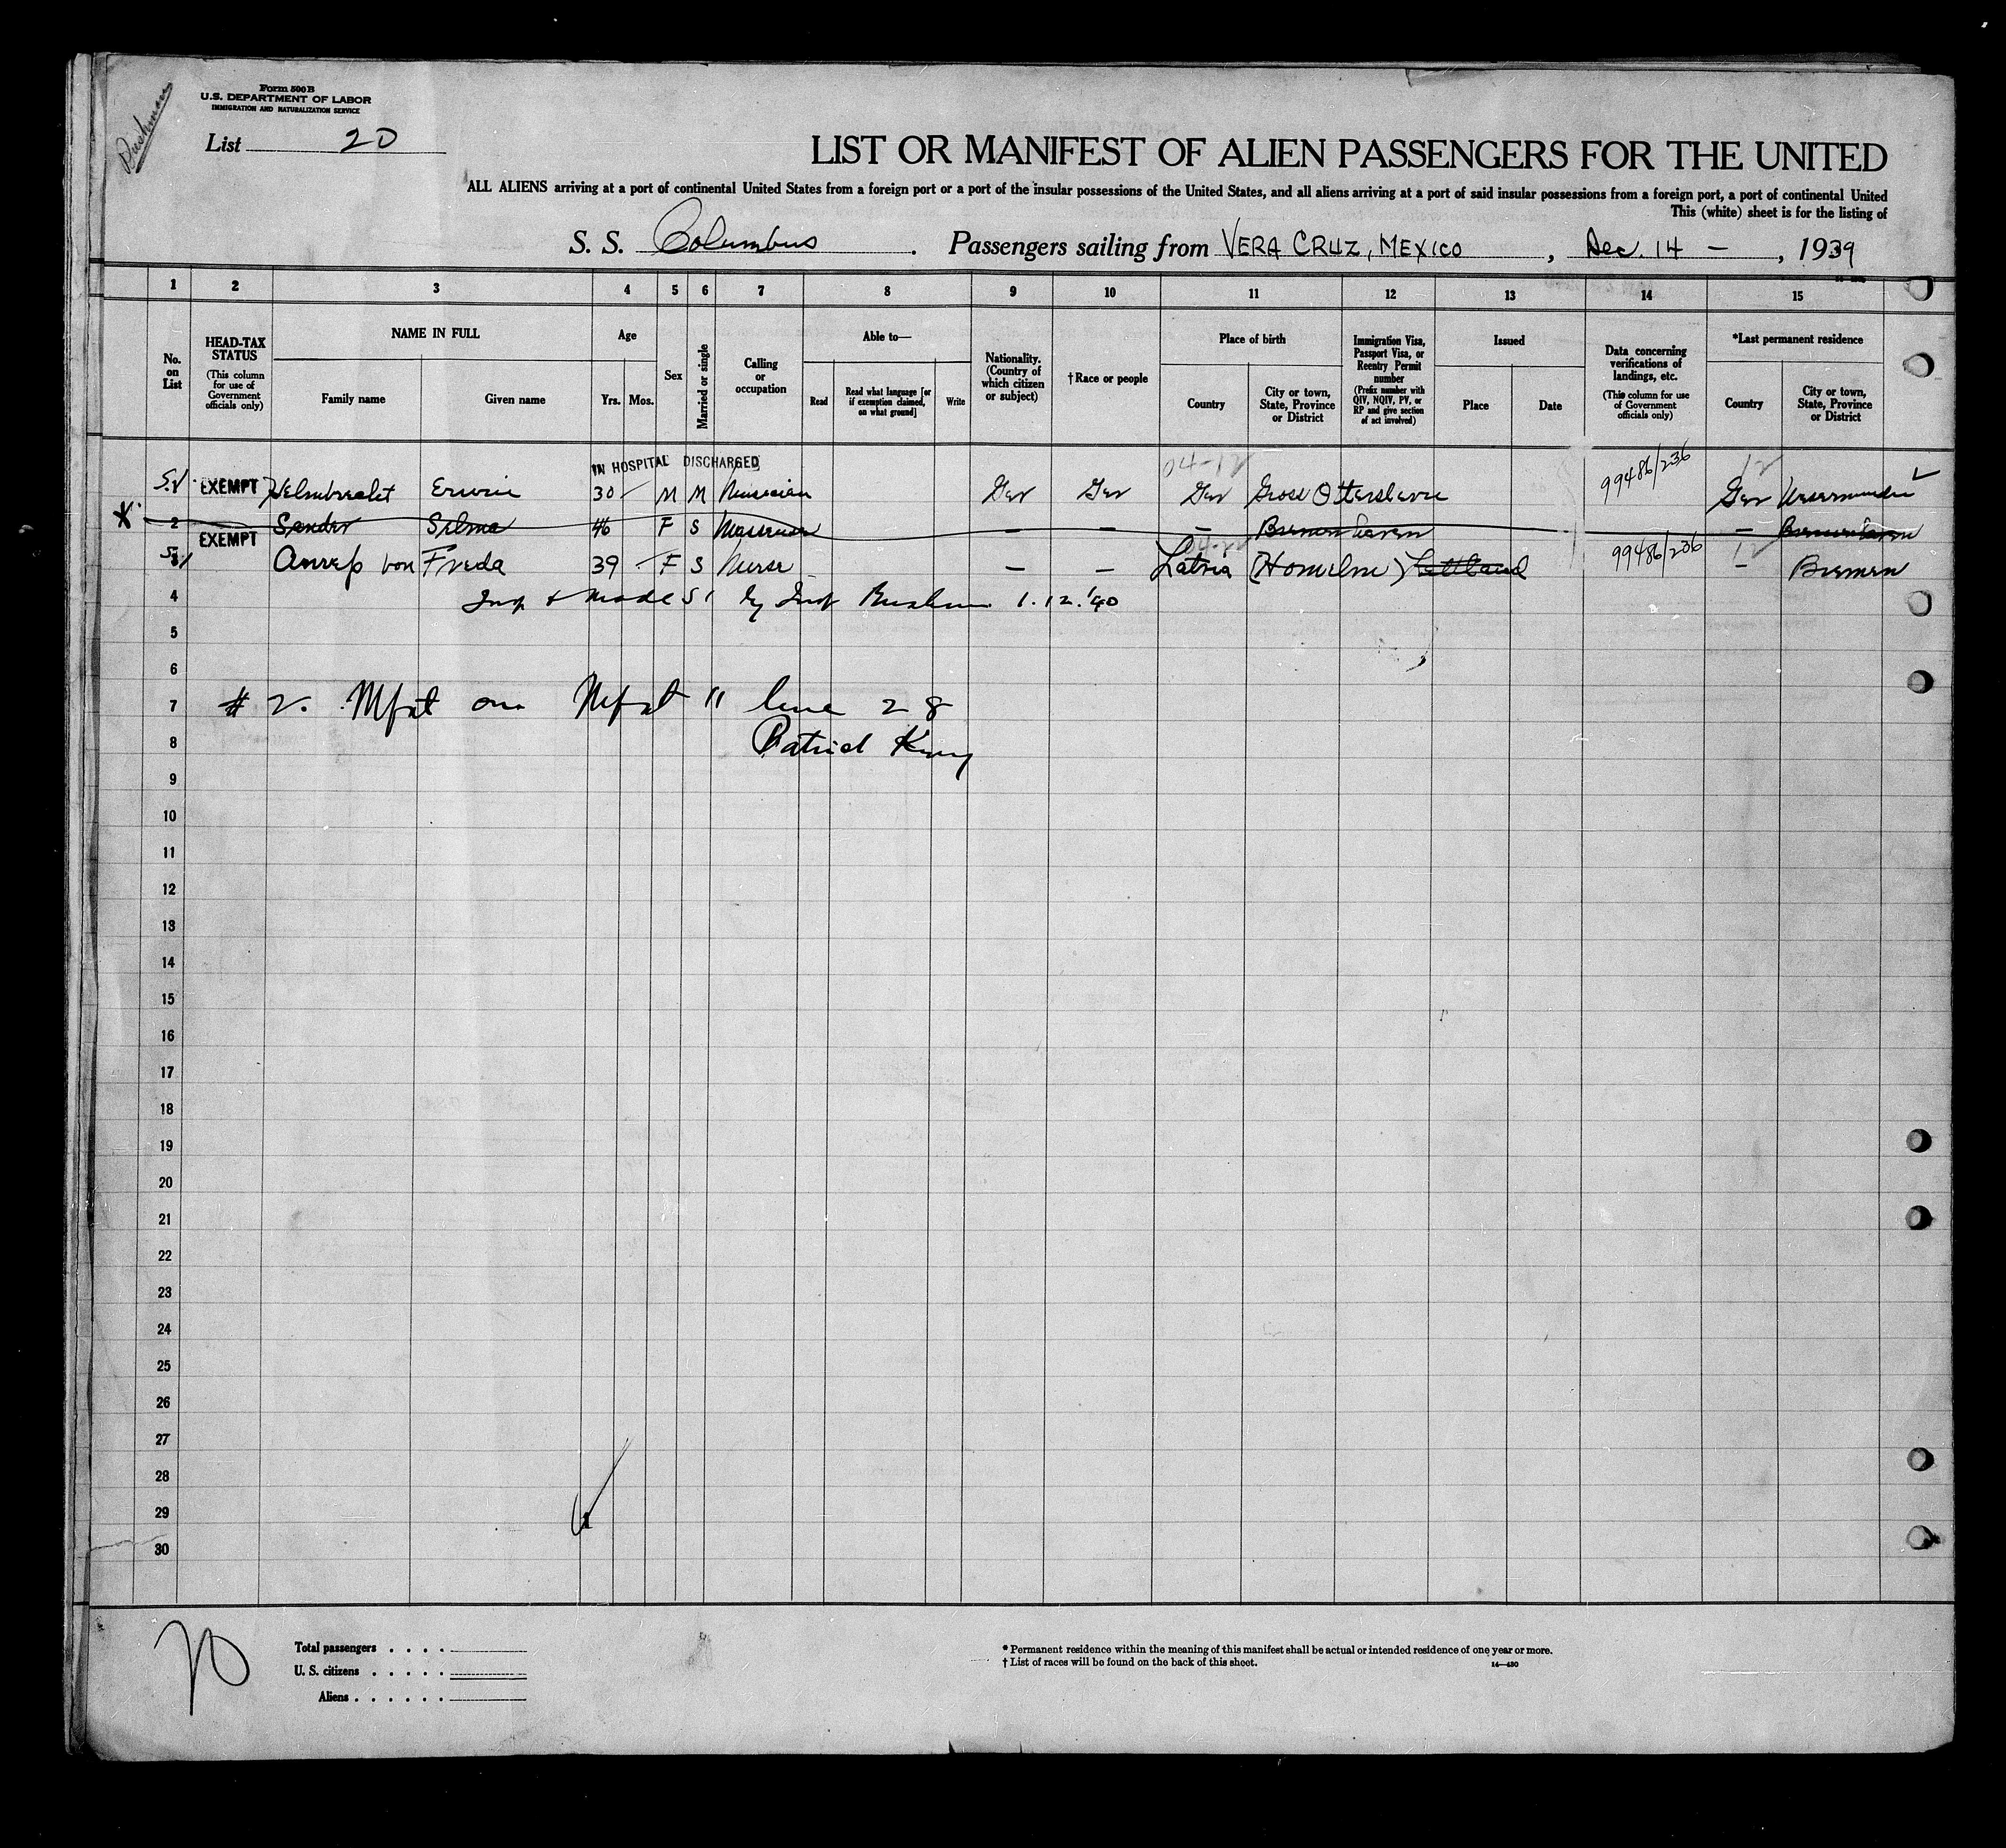 Bushman
Form 500 B
U.S. DEPARTMENT OF LABOR
IMMIGRATION AND NATURALIZATION SERVICE
List 20
LIST OR MANIFEST OF ALIEN PASSENGERS FOR THE UNITED
ALL ALIENS arriving at a port of continental United States from a foreign port or a port of the insular possessions of the United States, and all aliens arriving at a port of said insular possessions from a foreign port, a port of continental United
This (white) sheet is for the listing of
S. S. Columbus. Passengers sailing from VERA CRUZ, MEXICO, Dec. 14 –, 1939
1 2 3 4 5 6 7 8 9 10 11 12 13 14 15
No. on List
HEAD-TAX STATUS (This column for use of Government officials only)
NAME IN FULL
Family name Given name
Age
Yrs. Mos.
Sex
Married or single
Calling or occupation
Able to—
Read Read what language [or if exemption claimed, on what ground] Write
Nationality. (Country of which citizen or subject)
†Race or people
Place of birth
Country City or town, State, Province or District
Immigration Visa, Passport Visa, or Reentry Permit number (Prefix number with QIV, NQIV, PV, or RP and give section of act involved)
Issued
Place Date
Data concerning verifications of landings, etc. (This column for use of Government officials only)
*Last permanent residence
Country City or town, State, Province or District
IN HOSPITAL DISCHARGED
EXEMPT Helmbrecht Erwin 30 M M Musician Ger Ger Ger Gross Ottersleben 99486/236 Ger Wesermünde
2 Sander Selma 46 F S Masseuse – – – Bremerhaven – Bremerhaven
EXEMPT Anrep von Freda 39 F S Nurse – – Latvia (Homeln) Lettland 99486/236 – Bremen
4 Insp & made S1 by Insp Bushman 1.12.'40
5
6
7 # 2. Mfst on Mfst 11 line 28
8 Patrick King
9
10
11
12
13
14
15
16
17
18
19
20
21
22
23
24
25
26
27
28
29
30
20
Total passengers . . . .
U. S. citizens . . . . .
Aliens . . . . . .
* Permanent residence within the meaning of this manifest shall be actual or intended residence of one year or more.
† List of races will be found on the back of this sheet.
14—430